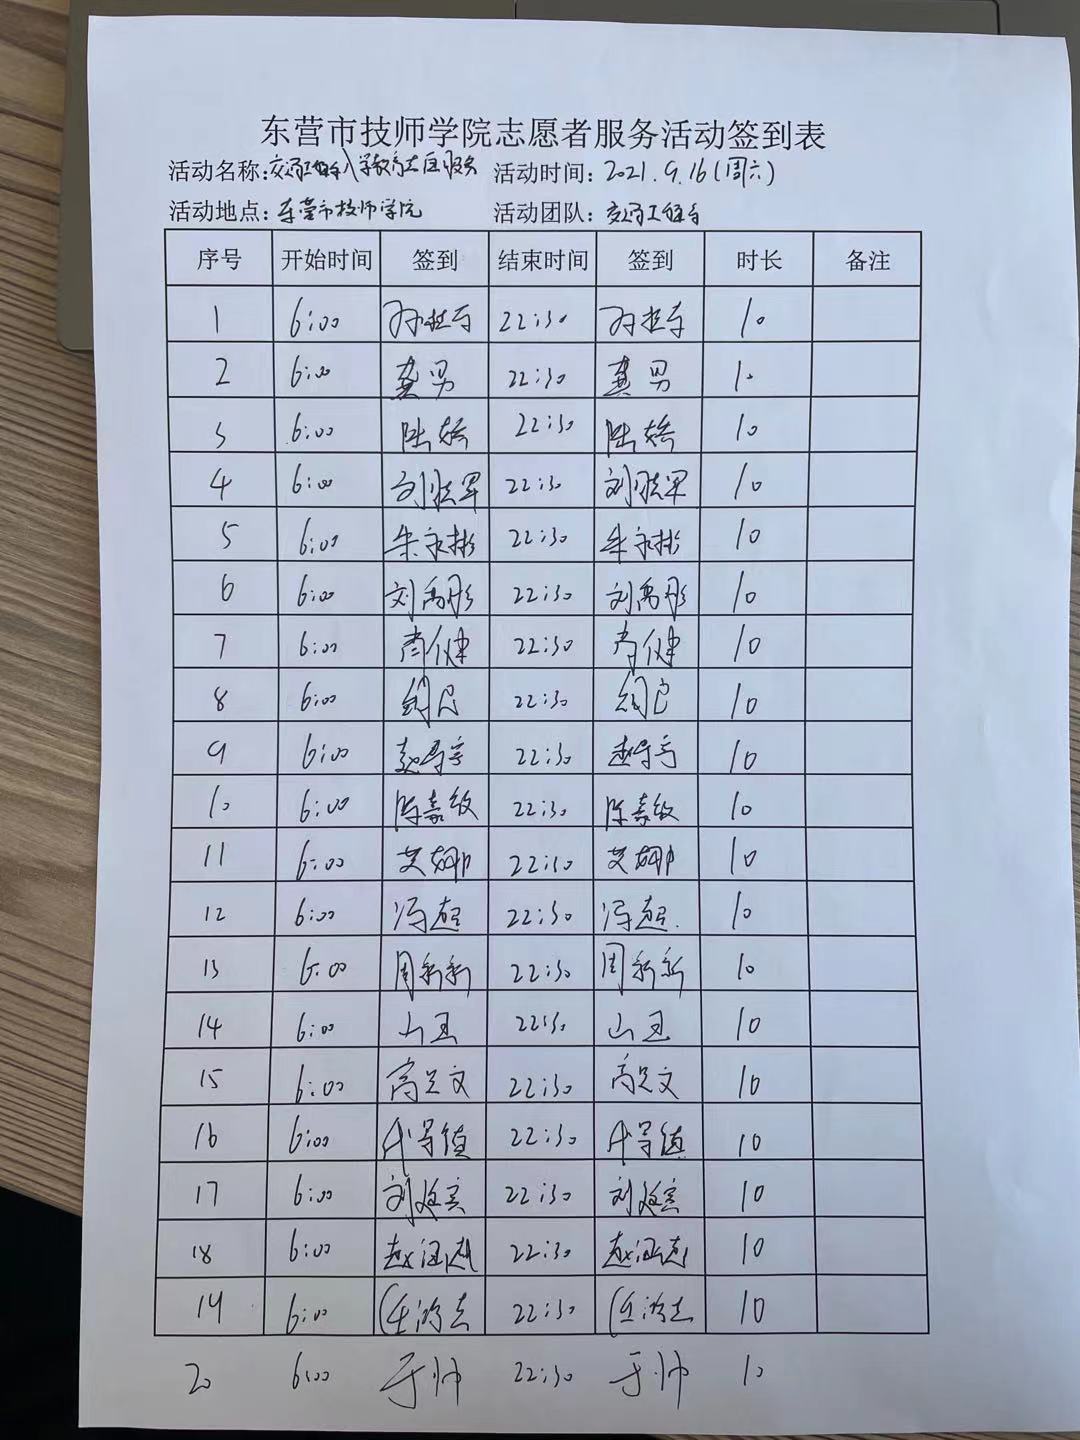 东营市技师学院志愿者服务活动签到表
活动名称:交通工程系入学教育志愿服务 活动时间: 2021.9.16(周六)
活动地点: 东营市技师学院 活动团队: 交通工程系
序号 开始时间 签到 结束时间 签到 时长 备注
1 6:00 22:30 10
2 6:00 龚男 22:30 龚男 10
3 6:00 陆娇 22:30 陆娇 10
4 6:00 刘胜军 22:30 刘胜军 10
5 6:00 朱永彬 22:30 朱永彬 10
6 6:00 刘禹彤 22:30 刘禹彤 10
7 6:00 肖健 22:30 肖健 10
8 6:00 22:30 10
9 6:00 22:30 10
10 6:00 陈嘉敏 22:30 陈嘉敏 10
11 6:00 艾娜 22:30 艾娜 10
12 6:00 冯超 22:30 冯超 10
13 6:00 周新新 22:30 周新新 10
14 6:00 山玉 22:30 山玉 10
15 6:00 高兴文 22:30 高兴文 10
16 6:00 22:30 10
17 6:00 刘延宾 22:30 刘延宾 10
18 6:00 22:30 10
19 6:00 任鸿志 22:30 任鸿志 10
20 6:00 于帅 22:30 于帅 10